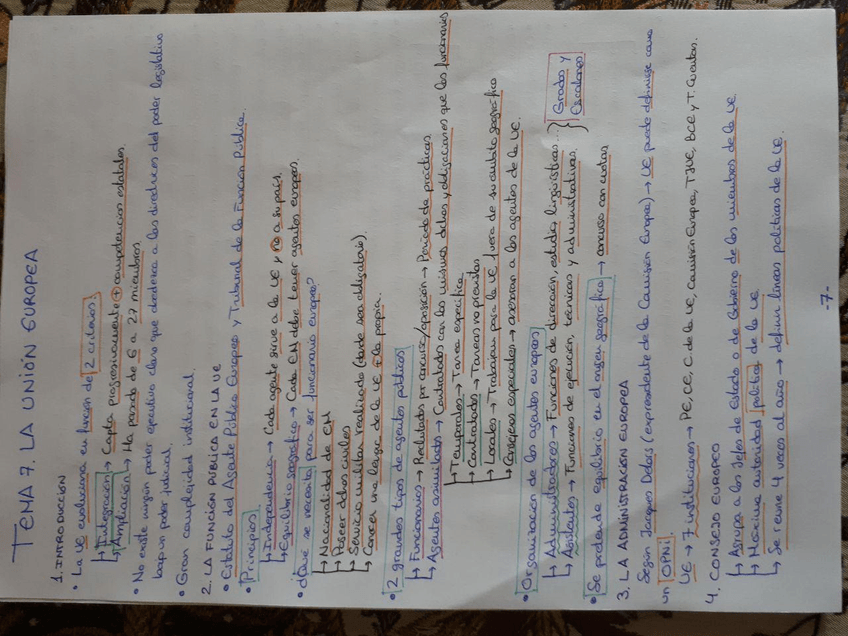 TEMA 7. LA UNIÓN EUROPEA
1. INTRODUCCIÓN
• La UE evoluciona en función de 2 criterios:
↳ Integración → Capta progresivamente ⊕ competencias estatales.
↳ Ampliación → Ha pasado de 6 a 27 miembros.
• No existe ningún poder ejecutivo claro que obedezca a las directrices del poder legislativo
bajo un poder judicial.
• Gran complejidad institucional.
2. LA FUNCIÓN PÚBLICA EN LA UE
• Estatuto del Agente Público Europeo y Tribunal de la Función Pública.
• Principios:
↳ Independencia → Cada agente sirve a la UE y no a su país.
↳ Equilibrio geográfico → Cada EM debe tener agentes europeos.
• ¿Qué se necesita para ser funcionario europeo?
↳ Nacionalidad de EM
↳ Poseer dchos civiles
↳ Servicio militar realizado (donde sea obligatorio).
↳ Conocer una lengua de la UE + la propia.
• 2 grandes tipos de agentes públicos
↳ Funcionarios → Reclutados por concurso/oposición → Periodo de prácticas
↳ Agentes asimilados → Contratados con los mismos dchos y obligaciones que los funcionarios
↳ Temporales → Tarea específica
↳ Contratados → Tareas no previstas
↳ Locales → Trabajan para la UE fuera de su ámbito geográfico
↳ Consejeros especiales → asesoran a los agentes de la UE.
• Organización de los agentes europeos
↳ Administradores → Funciones de dirección, estudio, lingüísticas... } Grados y
↳ Asistentes → Funciones de ejecución, técnicas y administrativas. Escalones
• Se pretende equilibrio en el origen geográfico → concurso con cuotas
3. LA ADMINISTRACIÓN EUROPEA
Según Jacques Delors (expresidente de la Comisión Europea) → UE puede definirse como
un OPNI
UE → 7 instituciones → PE, CE, C. de la UE, Comisión Europea, TJUE, BCE y T. Cuentas.
4. CONSEJO EUROPEO
↳ Agrupa a los Jefes de Estado o de Gobierno de los miembros de la UE.
↳ Máxima autoridad política de la UE
↳ Se reúne 4 veces al año → definir líneas políticas de la UE.
-7-